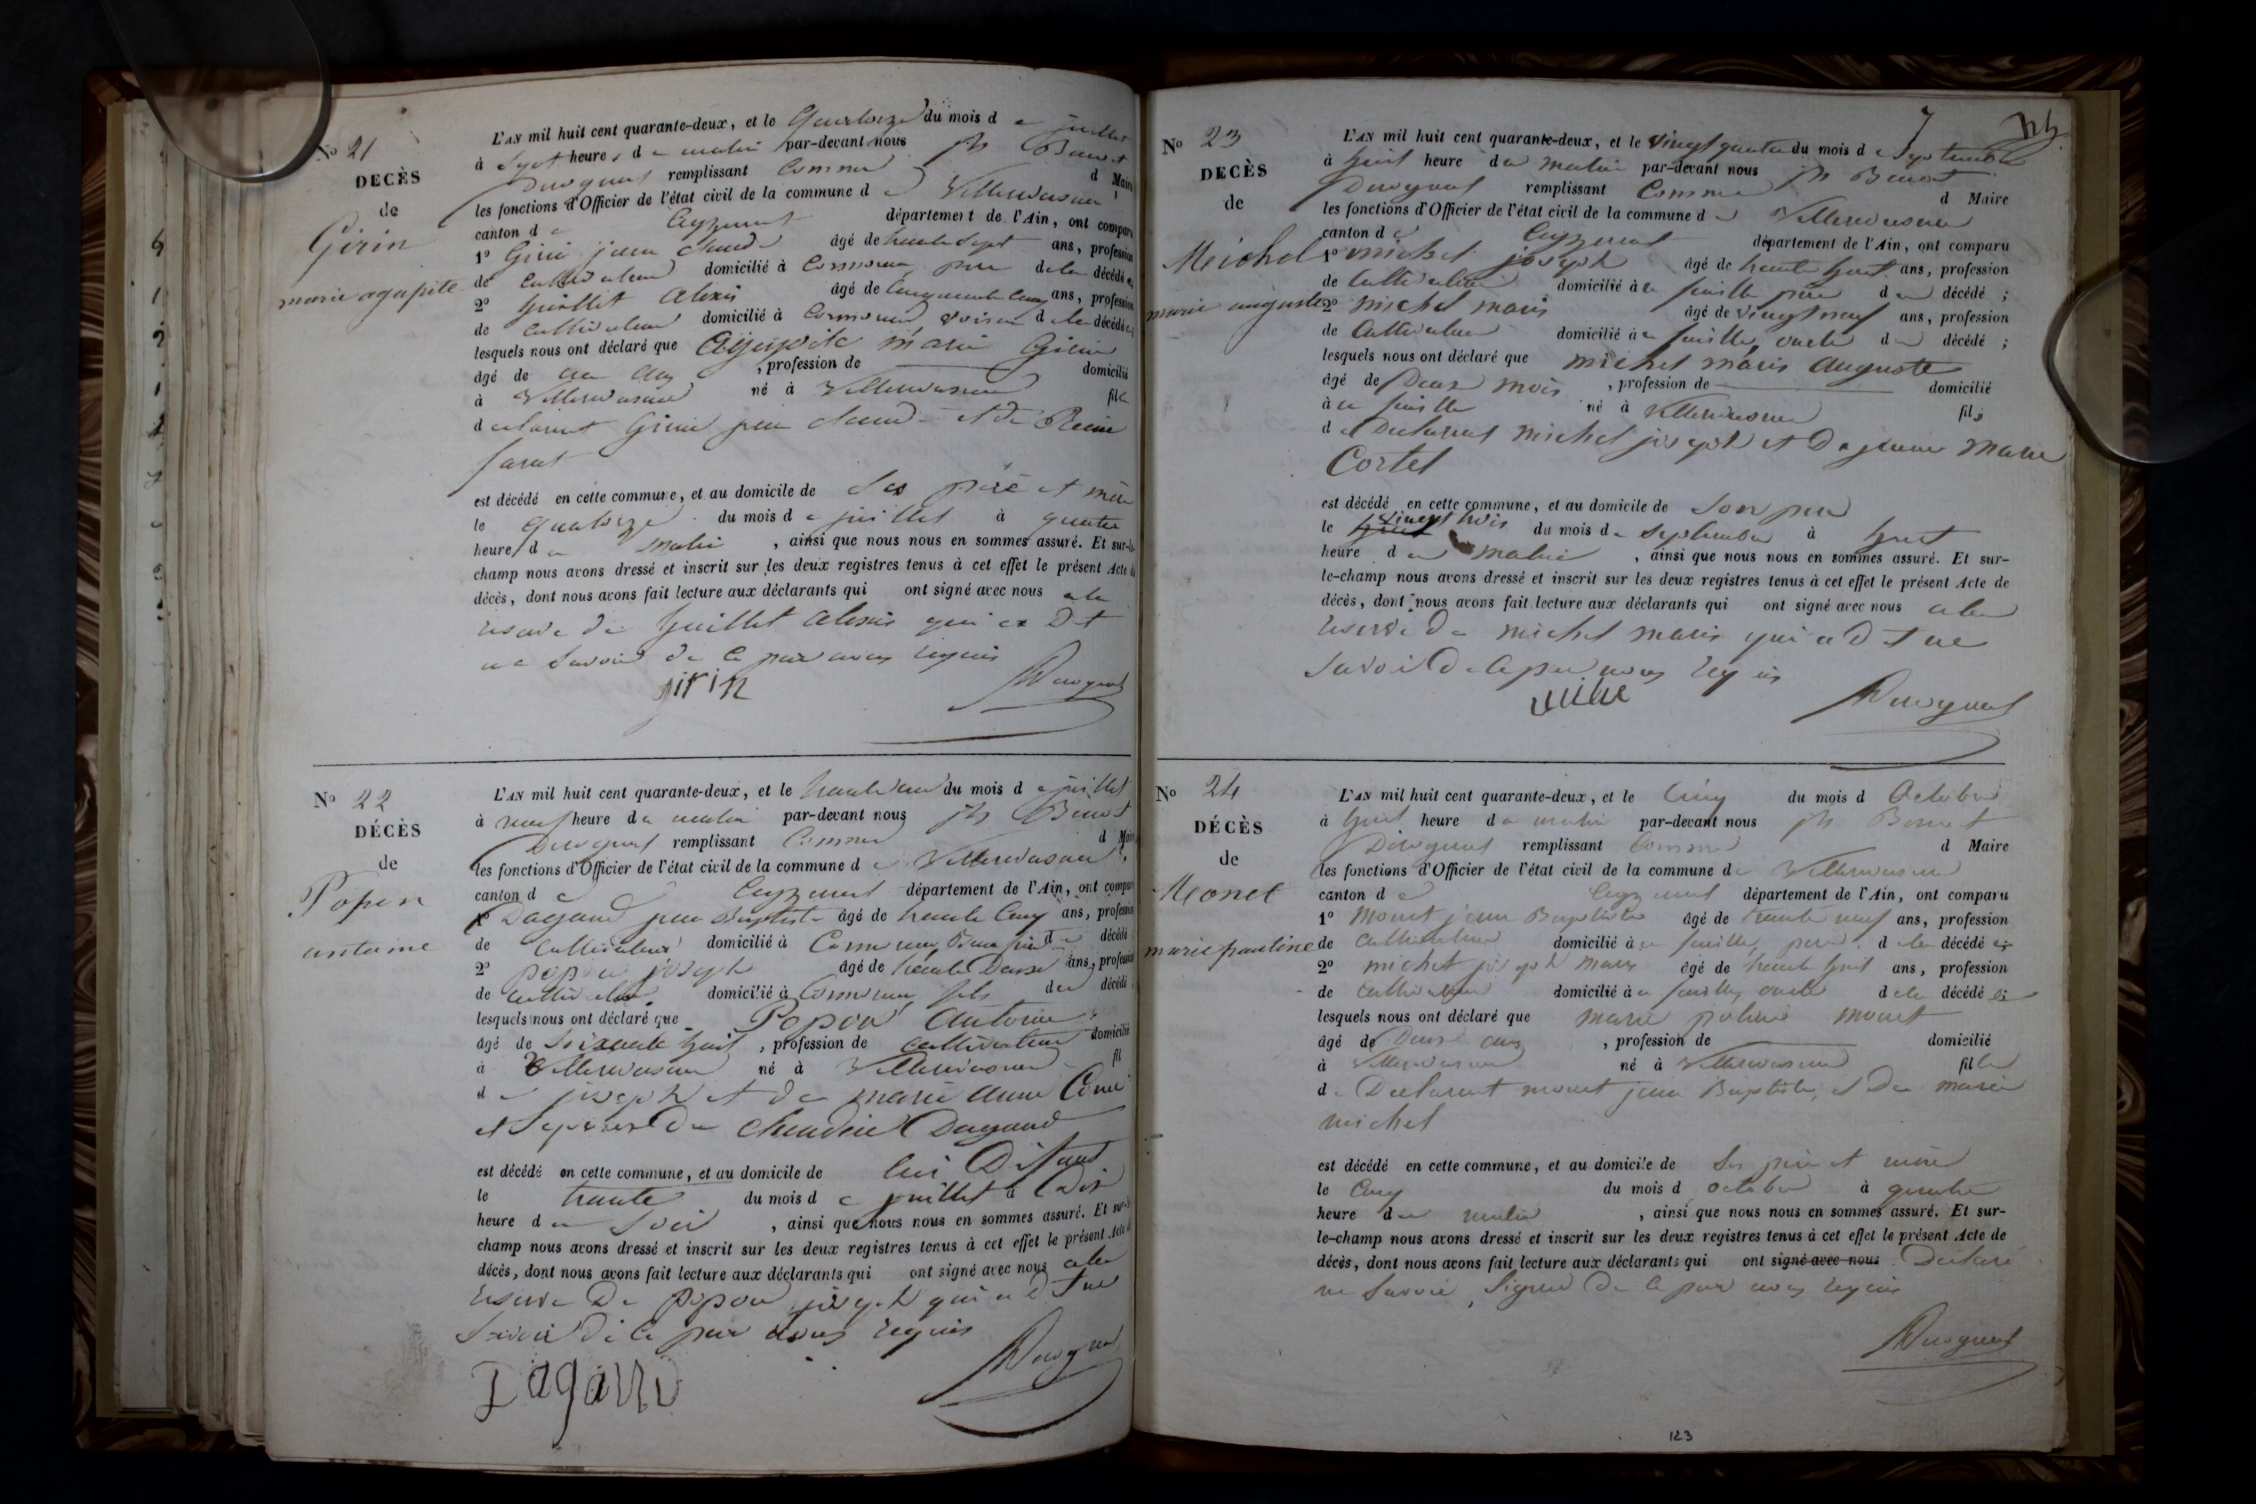 No 21
DECÈS
de
Girin
marie agapite
L'AN mil huit cent quarante-deux, et le Quatorze du mois de juillet
à Sept heures du matin par-devant nous Ph Benoit
Duroquat remplissant Comme d Maire
les fonctions d'Officier de l'état civil de la commune de Villereversure
canton de Ceyzeriat département de l'Ain, ont comparu
1o Girin jean claude âgé de trente Sept ans, profession
de Cultivateur domicilié à Cormoreau père de la décédée
2o Guillet Alexis âgé de Cinquante Cinq ans, profession
de Cultivateur domicilié à Cormoreau voisin de la décédée
lesquels nous ont déclaré que Agapite marie Girin
âgé de un an, profession de domicilié
à Villereversure né à Villereversure fille
declarant Girin jean claude et de Reine
Sarat
est décédé en cette commune, et au domicile de Ses père et mère
le quatorze du mois de juillet à quatre
heures du matin, ainsi que nous nous en sommes assuré. Et sur-le
champ nous avons dressé et inscrit sur les deux registres tenus à cet effet le présent Acte de
décès, dont nous avons fait lecture aux déclarants qui ont signé avec nous a la
reserve de Guillet Alexis qui a Dit
ne Savoir de ce par nous requis
girin
Duroquat
No 22
DÉCÈS
de
Popon
antoine
L'AN mil huit cent quarante-deux, et le trente un du mois de juillet
à neuf heure du matin par-devant nous Ph Benoit
Duroquat remplissant Comme d Maire
les fonctions d'Officier de l'état civil de la commune de Villereversure
canton de Ceyzeriat département de l'Ain, ont comparu
1o Dagand jean Baptiste âgé de trente Cinq ans, profession
de Cultivateur domicilié à Cormoreau Beau frère du décédé
2o popon joseph âgé de trente Deux ans, profession
de Cultivateur domicilié à Cormoreau fils du décédé
lesquels nous ont déclaré que Popon Antoine
âgé de Soixante huit, profession de cultivateur domicilié
à Villereversure né à Villereversure fil
de joseph et de marie anne
et Epoux De Claudine Dagand
est décédé en cette commune, et au domicile de lui Disant
le trente du mois de juillet à Dix
heure du Soir, ainsi que nous nous en sommes assuré. Et sur-le
champ nous avons dressé et inscrit sur les deux registres tenus à cet effet le présent Acte de
décès, dont nous avons fait lecture aux déclarants qui ont signé avec nous a la
reserve De popon joseph qui a dit ne
Savoir de ce par nous requis
Dagand
Duroquat
7
No 23
DECÈS
de
Meichel
marie auguste
L'AN mil huit cent quarante-deux, et le vingt quatre du mois de Septembre
à huit heure du matin par-devant nous Ph Benoit
Duroquat remplissant Comme d Maire
les fonctions d'Officier de l'état civil de la commune de Villereversure
canton de Ceyzeriat département de l'Ain, ont comparu
1o michel joseph âgé de trente huit ans, profession
de Cultivateur domicilié à père du décédé ;
2o michel maris âgé de vingt neuf ans, profession
de Cultivateur domicilié à oncle du décédé ;
lesquels nous ont déclaré que michel maris Auguste
âgé de Deux mois, profession de domicilié
à né à Villereversure fils
de Declarant michel joseph et De jeanne marie
Cortel
est décédé en cette commune, et au domicile de Son père
le vingt trois du mois de Septembre à huit
heure du matin, ainsi que nous nous en sommes assuré. Et sur-
le-champ nous avons dressé et inscrit sur les deux registres tenus à cet effet le présent Acte de
décès, dont nous avons fait lecture aux déclarants qui ont signé avec nous a la
reserve de michel maris qui a dit ne
Savoir De ce par nous requis
Duroquat
No 24
DÉCÈS
de
Monet
marie pauline
L'AN mil huit cent quarante-deux, et le Cinq du mois d Octobre
à huit heure du matin par-devant nous Ph Benoit
Duroquat remplissant Comme d Maire
les fonctions d'Officier de l'état civil de la commune de Villereversure
canton de Ceyzeriat département de l'Ain, ont comparu
1o Monet jean Baptiste âgé de trente neuf ans, profession
de Cultivateur domicilié à père de la décédée
2o michel joseph maris âgé de trente huit ans, profession
de Cultivateur domicilié à oncle de la décédée
lesquels nous ont déclaré que marie poline monet
âgé de Deux ans, profession de domicilié
à Villereversure né à Villereversure fille
de Declarant monet jean Baptiste, et De marie
michel
est décédé en cette commune, et au domicile de Ses père et mère
le Cinq du mois d octobre à quatre
heure du matin, ainsi que nous nous en sommes assuré. Et sur-
le-champ nous avons dressé et inscrit sur les deux registres tenus à cet effet le présent Acte de
décès, dont nous avons fait lecture aux déclarants qui ont signé avec nous Declaré
ne Savoir Signer De ce par nous requis
Duroquat
123